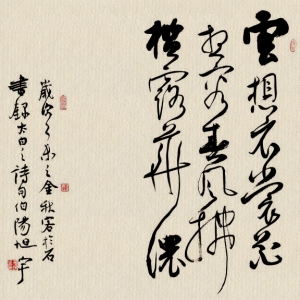 雲想衣裳花
想容春風拂
檻露華濃
歲次之金秋客於石
書錄太白之詩句伯陽坦宇